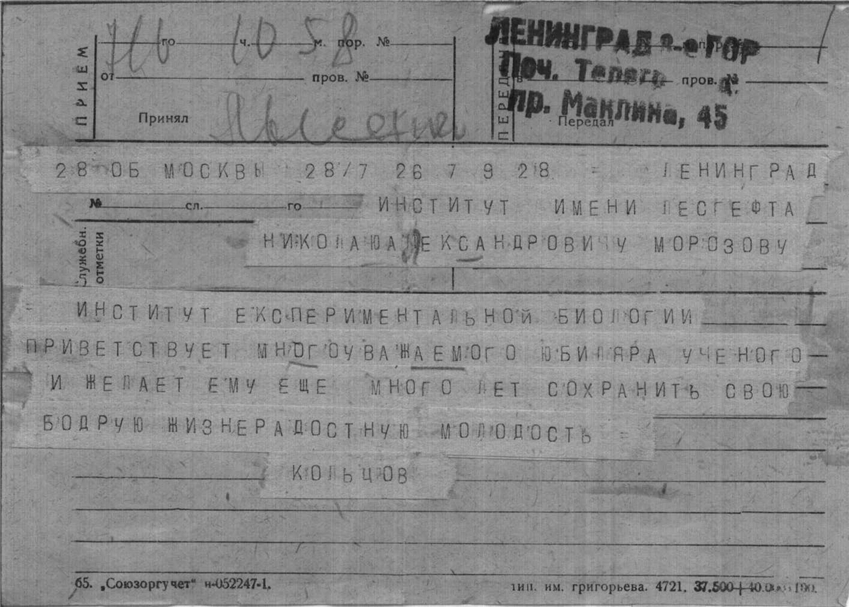 ПРИЕМ
го 10 ч. 58 м. пор. №
от пров. №
Принял
ЛЕНИНГРАД 8-е ГОР
Поч. Телегр
пр. Маклина, 45
пров. №
Передал
28 ОБ МОСКВЫ 28/7 26 7 9 28 = ЛЕНИНГРАД
№ сл. го ИНСТИТУТ ИМЕНИ ЛЕСГЕФТА
Служебн. отметки
НИКОЛАЮ АЛЕКСАНДРОВИЧУ МОРОЗОВУ
= ИНСТИТУТ ЕКСПЕРИМЕНТАЛЬНОЙ БИОЛОГИИ
ПРИВЕТСТВУЕТ МНОГОУВАЖАЕМОГО ЮБИЛЯРА УЧЕНОГО
И ЖЕЛАЕТ ЕМУ ЕЩЕ МНОГО ЛЕТ СОХРАНИТЬ СВОЮ
БОДРУЮ ЖИЗНЕРАДОСТНУЮ МОЛОДОСТЬ =
КОЛЬЦОВ
б5. „Союзоргучет" н-052247-1.
тип. им. григорьева. 4721. 37.500+40.000